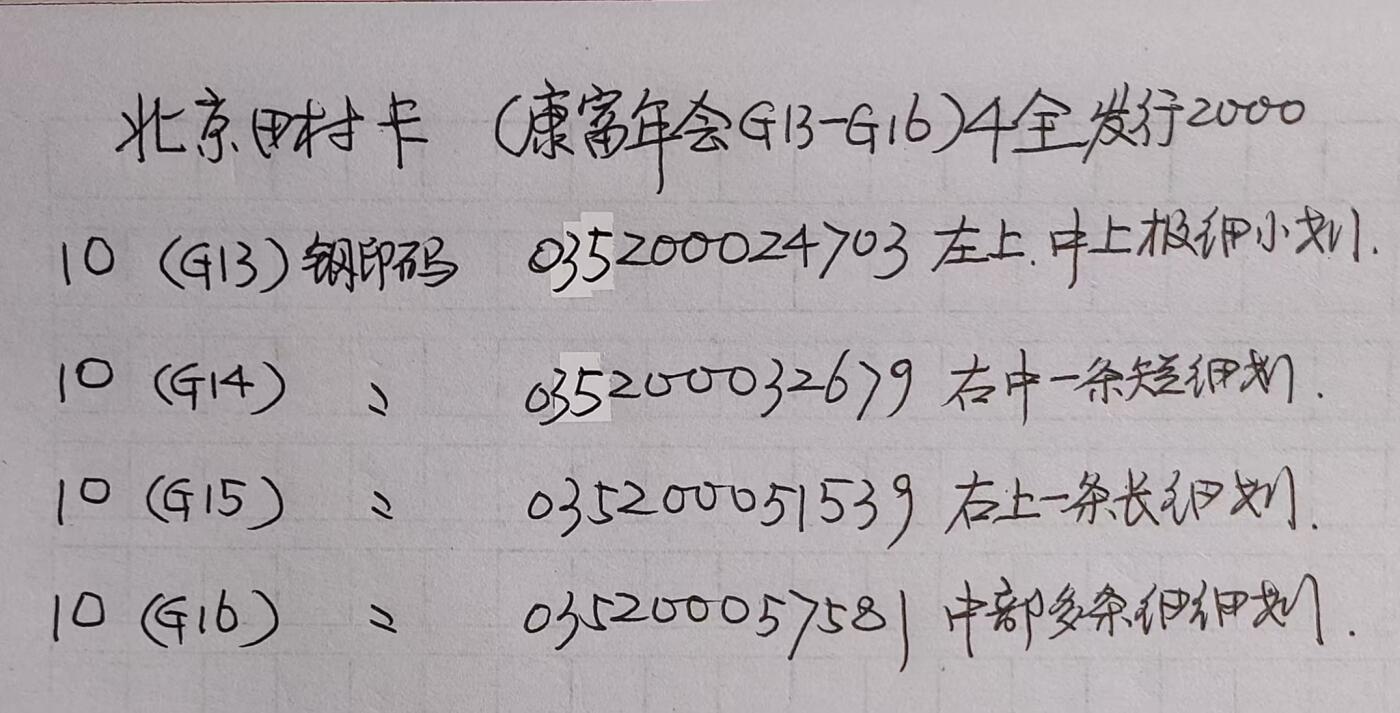 北京田村卡 (康富年会G13-G16)4全发行2000
10 (G13)钢印码 035200024703 左上.中上极细小划.
10 (G14) 〃 035200032679 右中一条短细划.
10 (G15) 〃 035200051539 右上一条长细划.
10 (G16) 〃 035200057581 中部多条细细划.